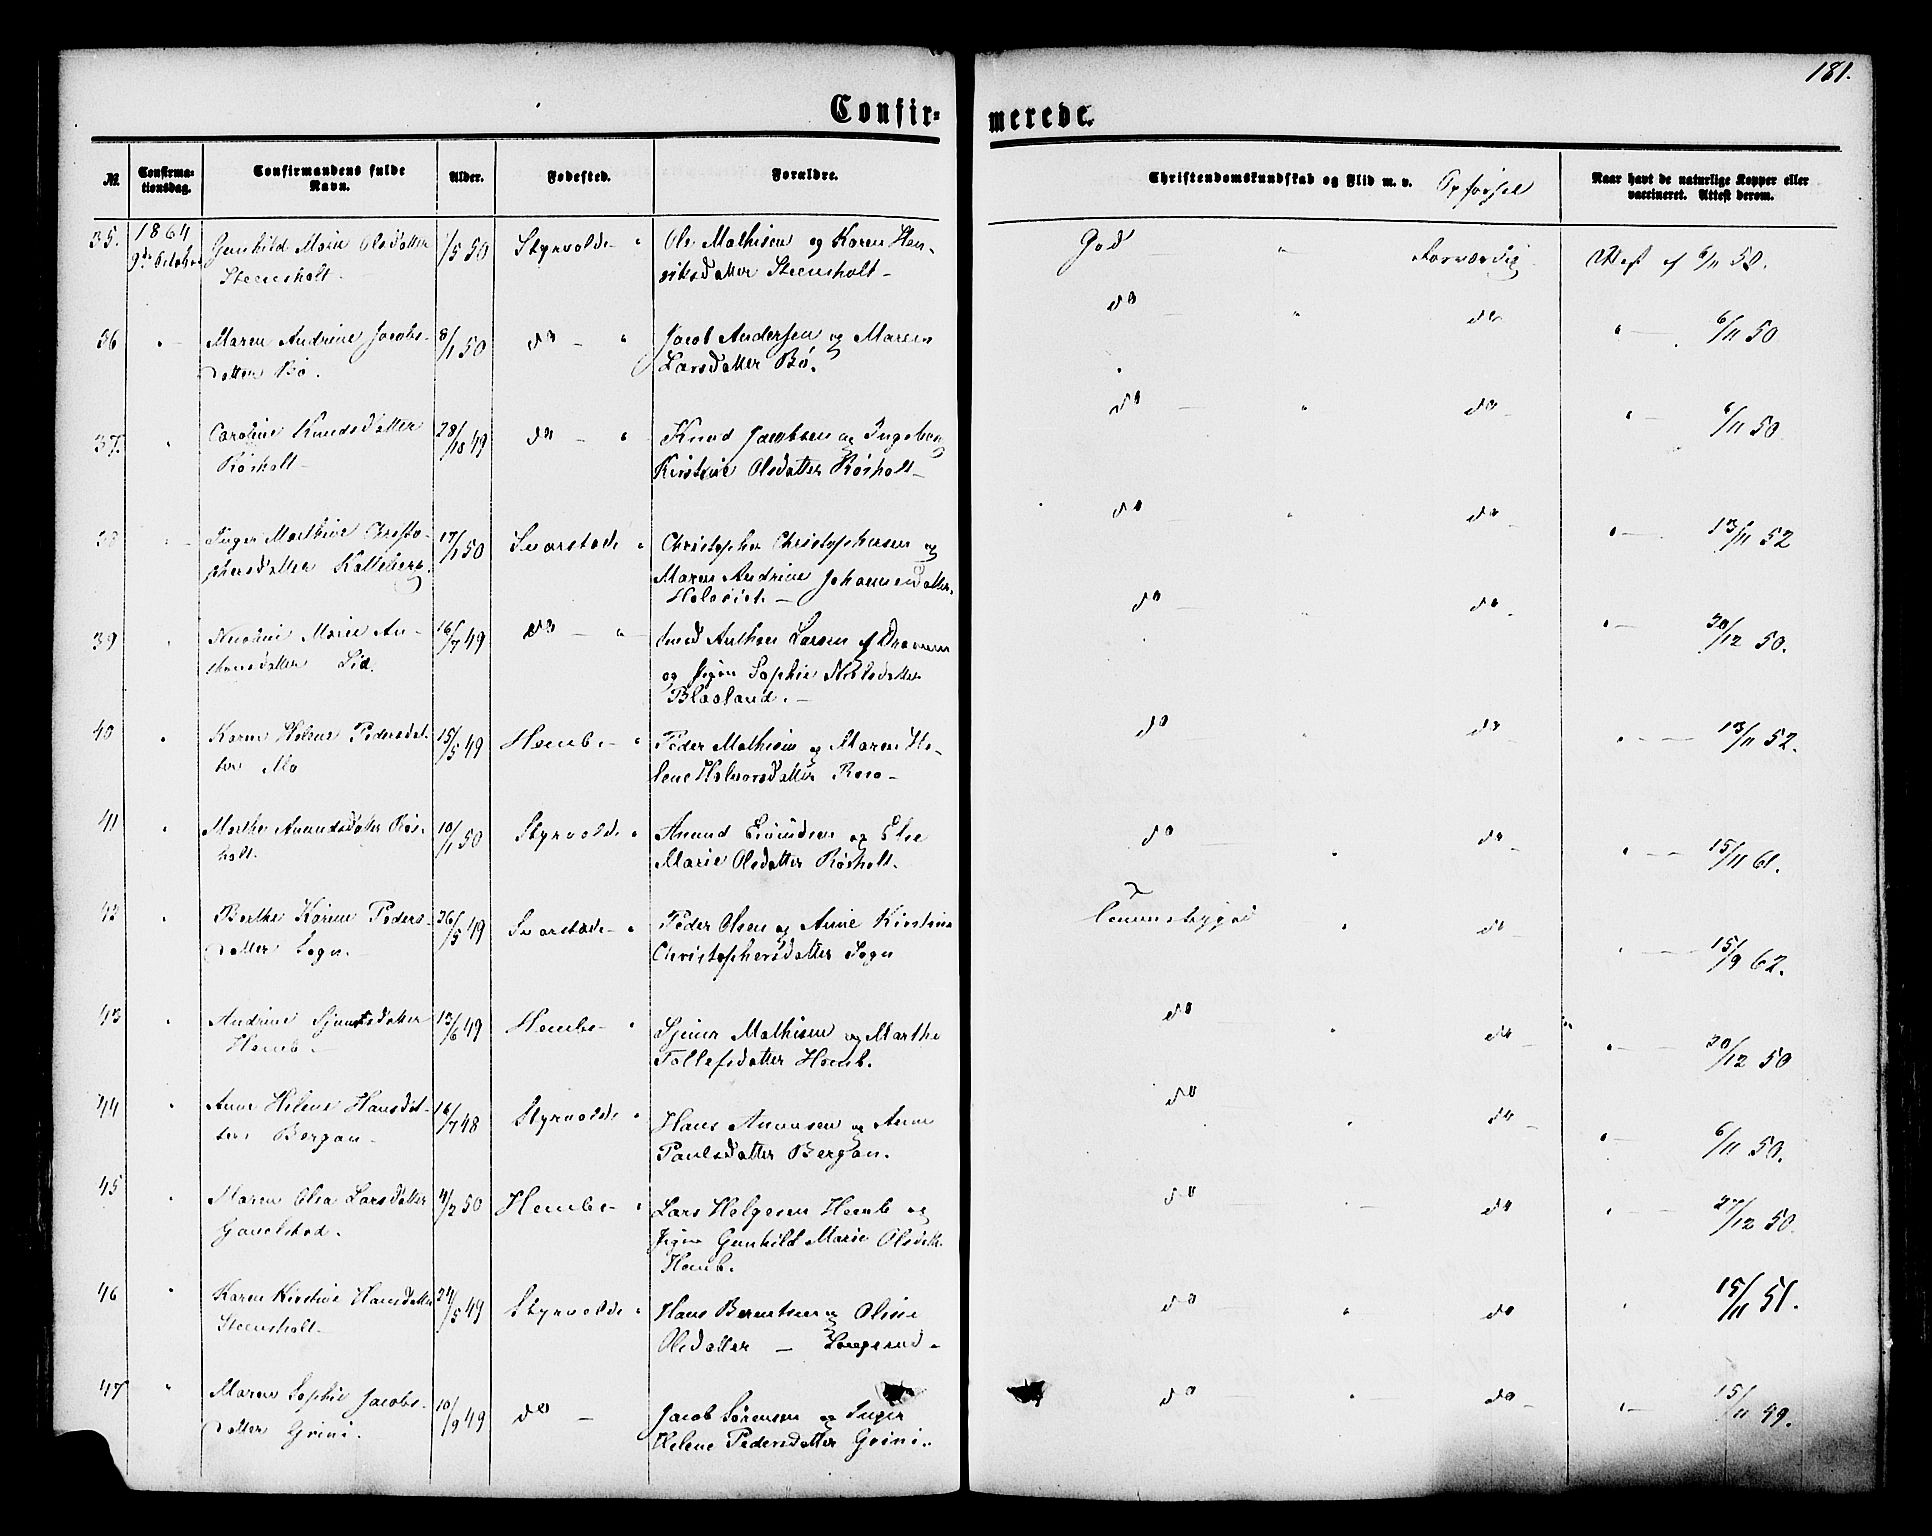 181.
Confirmerede.
№
Confirmationsdag.
Confirmandens fulde Navn.
Alder.
Fødested.
Forældre.
Christendomskundskab og Flid m. v. Opførsel
Naar havt de naturlige Kopper eller vaccineret. Attest derom.
35. 1864 9de October Gunhild Marie Olsdatter 1/5 50 Styrvolds " Ole Mathisen og Karen Hen- God " Rosværdig Attest af 6/11 50.
Steensholt. riksdatter Steensholt
36 " Maren Andrine Jacobs- 8/1 50 do " Jacob Andersen og Maren do " do " 6/11 50
datter Bø. Larsdatter Bø.
37. " Caroline Knudsdatter 28/10 49 do " Knud Jacobsen og Ingeborg do " do " 6/11 50
Røsholt Kirstine Olsdatter Røsholt
38 " Inger Mathive Christo- 17/1 50 Svarstads " Christopher Christophersen og do " do " 13/11 52
phersdatter Kalleberg Maren Andrine Johannesdatter
39 " Marie An- 16/7 49 do " Anthon Larsen af do " do " 30/12 50.
thonsdatter Lid. og Pigen Sophie Nielsdatter
Blaaland.
40 " Karen Helene Pedersdat- 15/5 49 Hembs " Peder Mathisen og Maren He- do " do " 13/11 52.
ter Mo lene Halvorsdatter
41 " Marthe Amundsdatter Røs- 10/1 50 Styrvolds " Amund Evindsen og Else do " do " 15/11 61.
holt. Marie Olsdatter Røsholt.
42 " Berthe Karine Peders- 26/5 49 Svarstads " Peder Olsen og Anne Kirstine " do " 15/9 62.
datter Sogn. Christophersdatter Sogn
43 " Andrine datter 13/6 49 Hembs " Mathisen og Marthe do " do " 30/12 50
Hemb. Tollefsdatter Hemb.
44 " Anne Helene Hansdat- 16/7 48 Styrvolds " Hans Amundsen og Anne do " do " 6/11 50.
ter Bergan Paulsdatter Bergan.
45 " Maren Olea Larsdatter 4/2 50 Hembs " Lars Helgesen Hemb og do " do " 27/12 50.
Gavelstad. Pigen Gunhild Marie Olsdatt.
Hemb.
46 " Karen Kirstine Hansdatter 24/5 49 Styrvolds " Hans Berntsen og Oline do " do " 15/11 51.
Steensholt Olsdatter — Langerud.
47 " Maren Sophie Jacobs- 10/9 49 do Jacob Sørensen og Inger do " do " 15/11 49.
datter Grini. Helene Pedersdatter Grini.